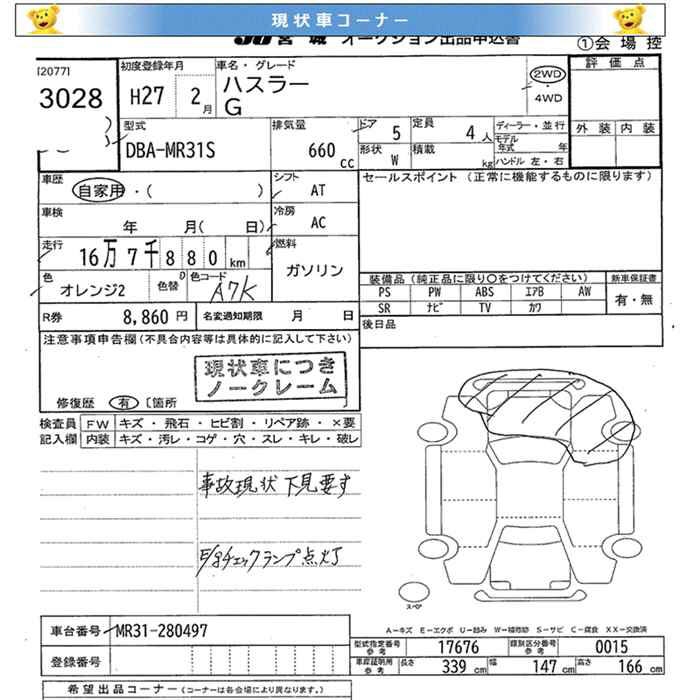 現状車コーナー
JU宮城 オークション出品申込書
①会場控
[2077]
3028
初度登録年月
H27 2月
車名・グレード
ハスラー
G
2WD
・
4WD
評価点
外装 内装
型式
DBA-MR31S
排気量
660 cc
ドア 5
定員 4人
形状 W
積載 kg
ディーラー・並行
モデル年式 年
ハンドル 左・右
車歴
自家用・( )
シフト
AT
セールスポイント (正常に機能するものに限ります)
車検
年 月( 日)
冷房
AC
走行
16万7千880km
燃料
ガソリン
色
オレンジ2
色替
色コード
A7K
装備品 (純正品に限り○をつけてください)
新車保証書
PS PW ABS エアB AW
有・無
SR ナビ TV カワ
R券 8,860円
名変通知期限 月 日
後日品
注意事項申告欄(不具合内容等は具体的に記入して下さい)
現状車につき
ノークレーム
修復歴 有 〔箇所
検査員記入欄
FW キズ・飛石・ヒビ割・リペア跡・×要
内装 キズ・汚レ・コゲ・穴・スレ・キレ・破レ
事故現状 下見要す
E/gチェックランプ点灯
スペア
A-キズ E-エクボ U-凹み W-補修跡 S-サビ C-腐食 XX-交換済
車台番号 MR31-280497
登録番号
型式指定番号 参考 17676
類別区分番号 参考 0015
車庫証明用 参考 長さ 339cm 幅 147cm 高さ 166cm
希望出品コーナー (コーナーは各会場により異なります。)